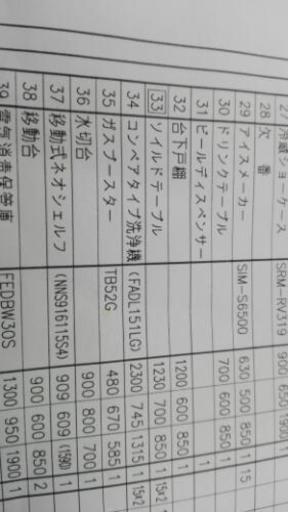 27 冷蔵ショーケース SRM-RV319 900 650 1900 1
28 欠番
29 アイスメーカー SIM-S6500 630 500 850 1 15
30 ドリンクテーブル 700 600 850 1
31 ビールディスペンサー 1
32 台下戸棚 1200 600 850 1
33 ソイルドテーブル 1230 700 850 1 15×2
34 コンベアタイプ洗浄機 (FADL151LG) 2300 745 1315 1 15×2
35 ガスブースター TB52G 480 670 585 1
36 水切台 900 800 700 1
37 移動式ネオシェルフ (NNS916115S4) 909 609 (1590) 1
38 移動台 900 600 850 2
39 電気消毒保管庫 FEDBW30S 1300 950 1900 1